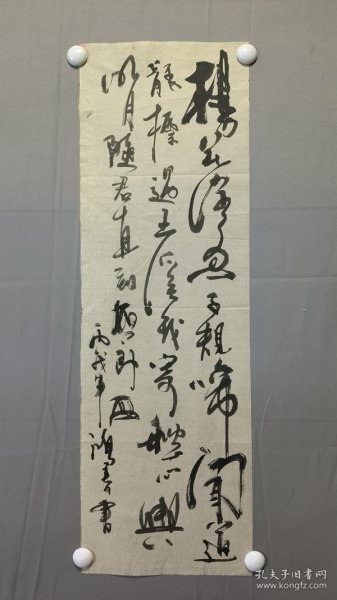 楊花落盡子規啼聞道
龍標過五溪我寄愁心與
明月隨君直到夜郎西
丙戌年
書
孔夫子旧书网
www.kongfz.com